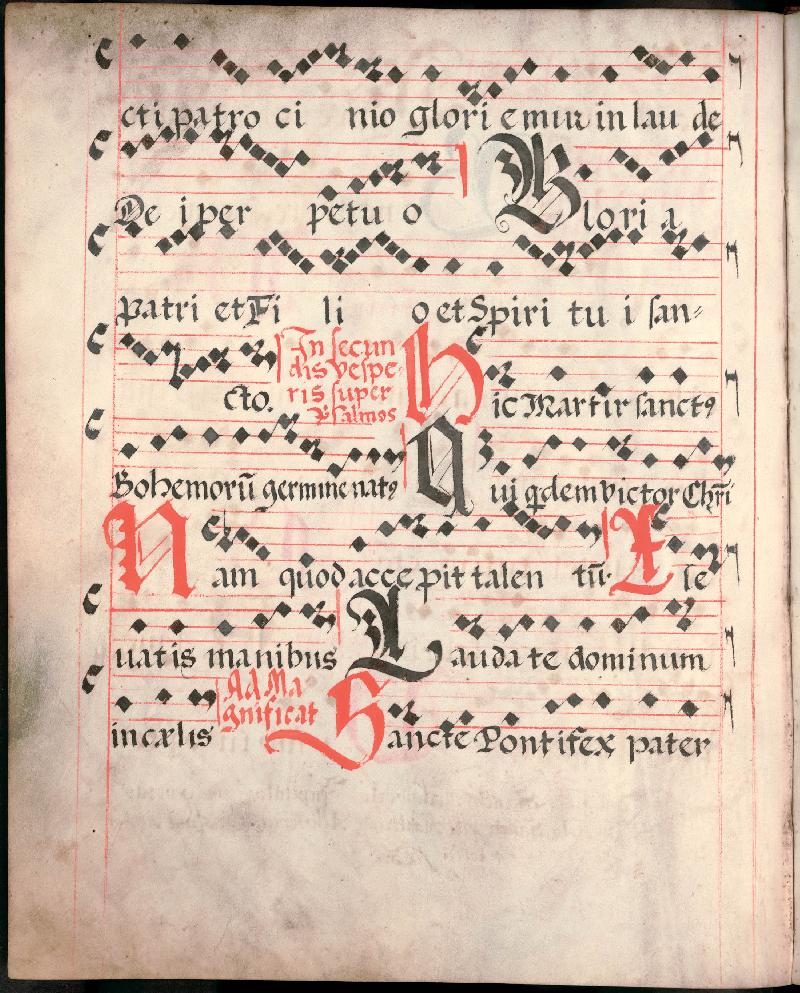 cti patro ci nio glori e mur in lau de
De i per petu o Glori a
patri et Fi li o et Spiri tu i san=
cto. In secun
dis vespe-
ris super
psalmos
Hic Martir sanctꝰ
Bohemorū germine natꝰ Qui qdem victor Chri̅
Nam quod acce pit talen tū. Ele
uatis manibus Laudate dominum
in cælis Ad Ma
gnificat
Sancte Pontifex pater